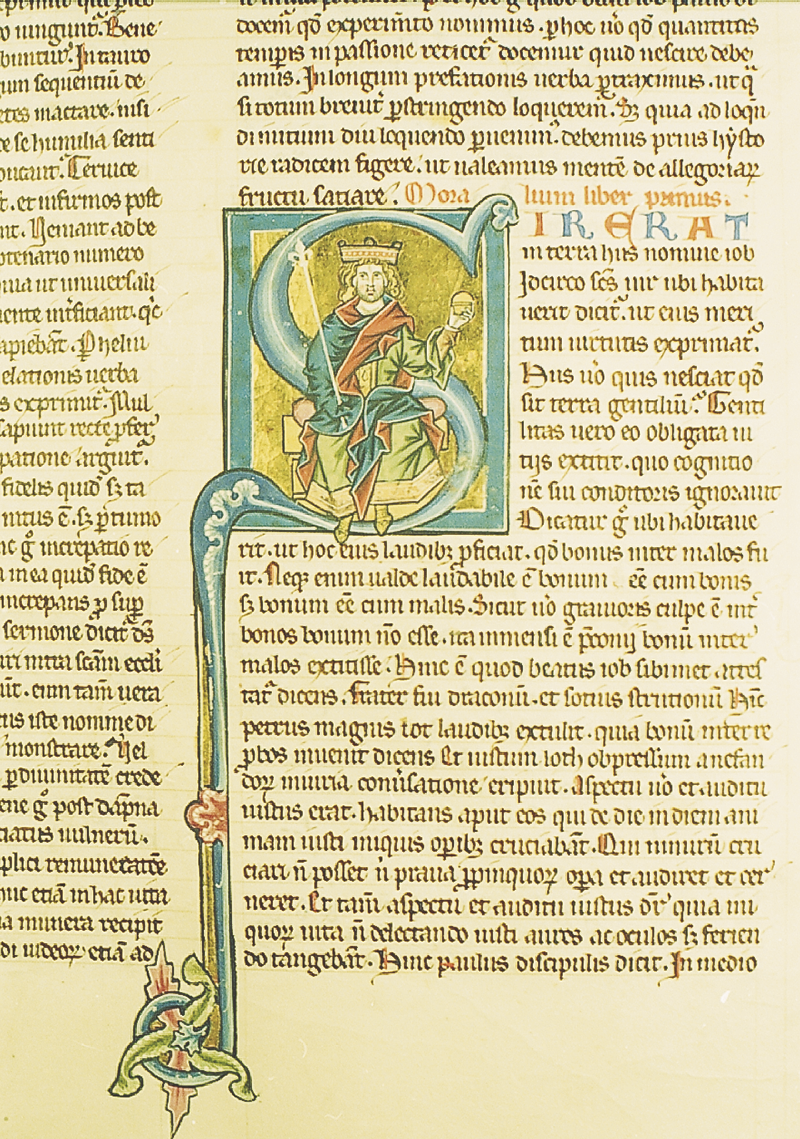 ningunt. Bene
buntur. In tauro
um sequentiū de
mactare. nisi
de se humilia senti
. et infirmos post
nt. Veniant ad be
ptenario numero
uia ut uniuersali
elationis uerba
s exprimit. Mul
sapiunt recte ꝑfer
patione arguit.
fidelis quid
ne g increpatio re
in ea quid fide ē
increpans ꝓ suꝑ
sermone dicit ds̄
uri intra scām eccli
ūt. cum tam uera
us iste nomine di
monstrare. Vel
ꝑ diuinitatē crede
ene g post dāpna
ciatus uulnerū.
plici remuneratōe
nic etiā in hac uita
a munera recipit
di uideoꝝ etiā ad
docem qđ experim̄to nouimus. ꝑ hoc ūo qđ quantitas
temꝑis in passione reticet᷑ docemur quid nescire debe
amus. In longum prefationis uerba ꝑtraximus. ut q̄
si totum breuit ꝑstringendo loquerem̄. Sꝫ quia ad loqn
di initium diu loquendo ꝑuenim̄. debemus prius hysto
rie radicem figere. ut ualeamus mentē de allegoriaꝝ
fructu satiare. Moralium liber primus.
VIR ERAT
in terra hus nomine iob
Idcirco scs̄ uir ubi habita
uerit dicit. ut eius meri
tum uirtutis exprimat.
Hus ūo quis nesciat qđ
sit terra gentiliū. Genti
litas uero eo obligata ui
tijs extitit. quo cognitio
nē sui conditoris ignorauit
Dicatur g ubi habitaue
rit. ut hoc eius laudibꝫ ꝓficiat. qđ bonus inter malos fu
it. Neqꝫ enim ualde laudabile ē bonum ēē cum bonis
sꝫ bonum ēē cum malis. Sicut ūo grauioris culpe ē int
bonos bonum nō esse. ita immensi ē p̄conij bonū inter
malos extitisse. Hinc ē quod beatus iob sibimet attes
tat dicens. Frater fui draconū. et sotius strutionū Hīc
petrus magnis hunc loth laudibꝫ extulit. quia bonū inter re
ꝓbos inuenit dicens Et iustum loth obpressum a nefan
doꝝ iniuria conūsatione eripuit. Aspectu ūo et auditu
iustus erat. habitans aput eos qui de die in diem ani
mam iusti iniquis oꝑibꝫ cruciabāt. Qui nimirū cru
ciari n̄ posset n̄ praua ꝓpinquoꝝ oꝑa et audiret et cer
neret. Et tam̄ aspectu et auditu iustus dr̄ quia ini
quoꝝ uita n̄ delectando iusti aures ac oculos sꝫ ferien
do tangebāt. Hinc paulus discipulis dicit. In medio